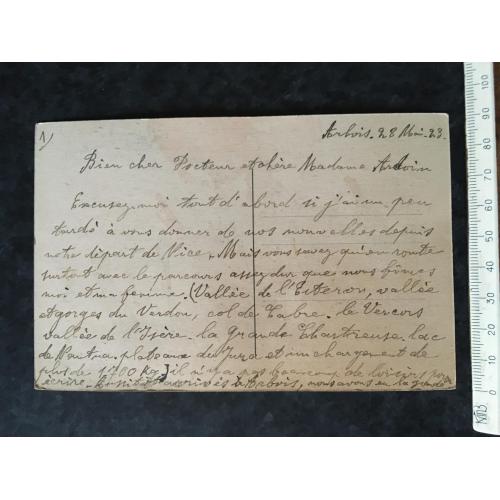 1)
Arbois. 28 Mai. 23.
Bien cher Docteur et chère Madame Ardoin
Excusez-moi tout d'abord si j'ai un peu
tardé à vous donner de nos nouvelles depuis
notre départ de Nice. Mais vous savez qu'en route
surtout avec le parcours assez dur que nous fîmes
moi et ma femme. (Vallée de l'Esteron, vallée
et gorges du Verdon, col de Cabre. le Vercors
vallée de l'Isère. la Grande Chartreuse. lac
de Nantua, plateaux du Jura et un chargement de
plus de 1700 kg) il n'y a pas beaucoup de loisirs pour
écrire. arrivés à Arbois, nous avons eu la grande
10 20 30 40 50 60 70 80 90 100